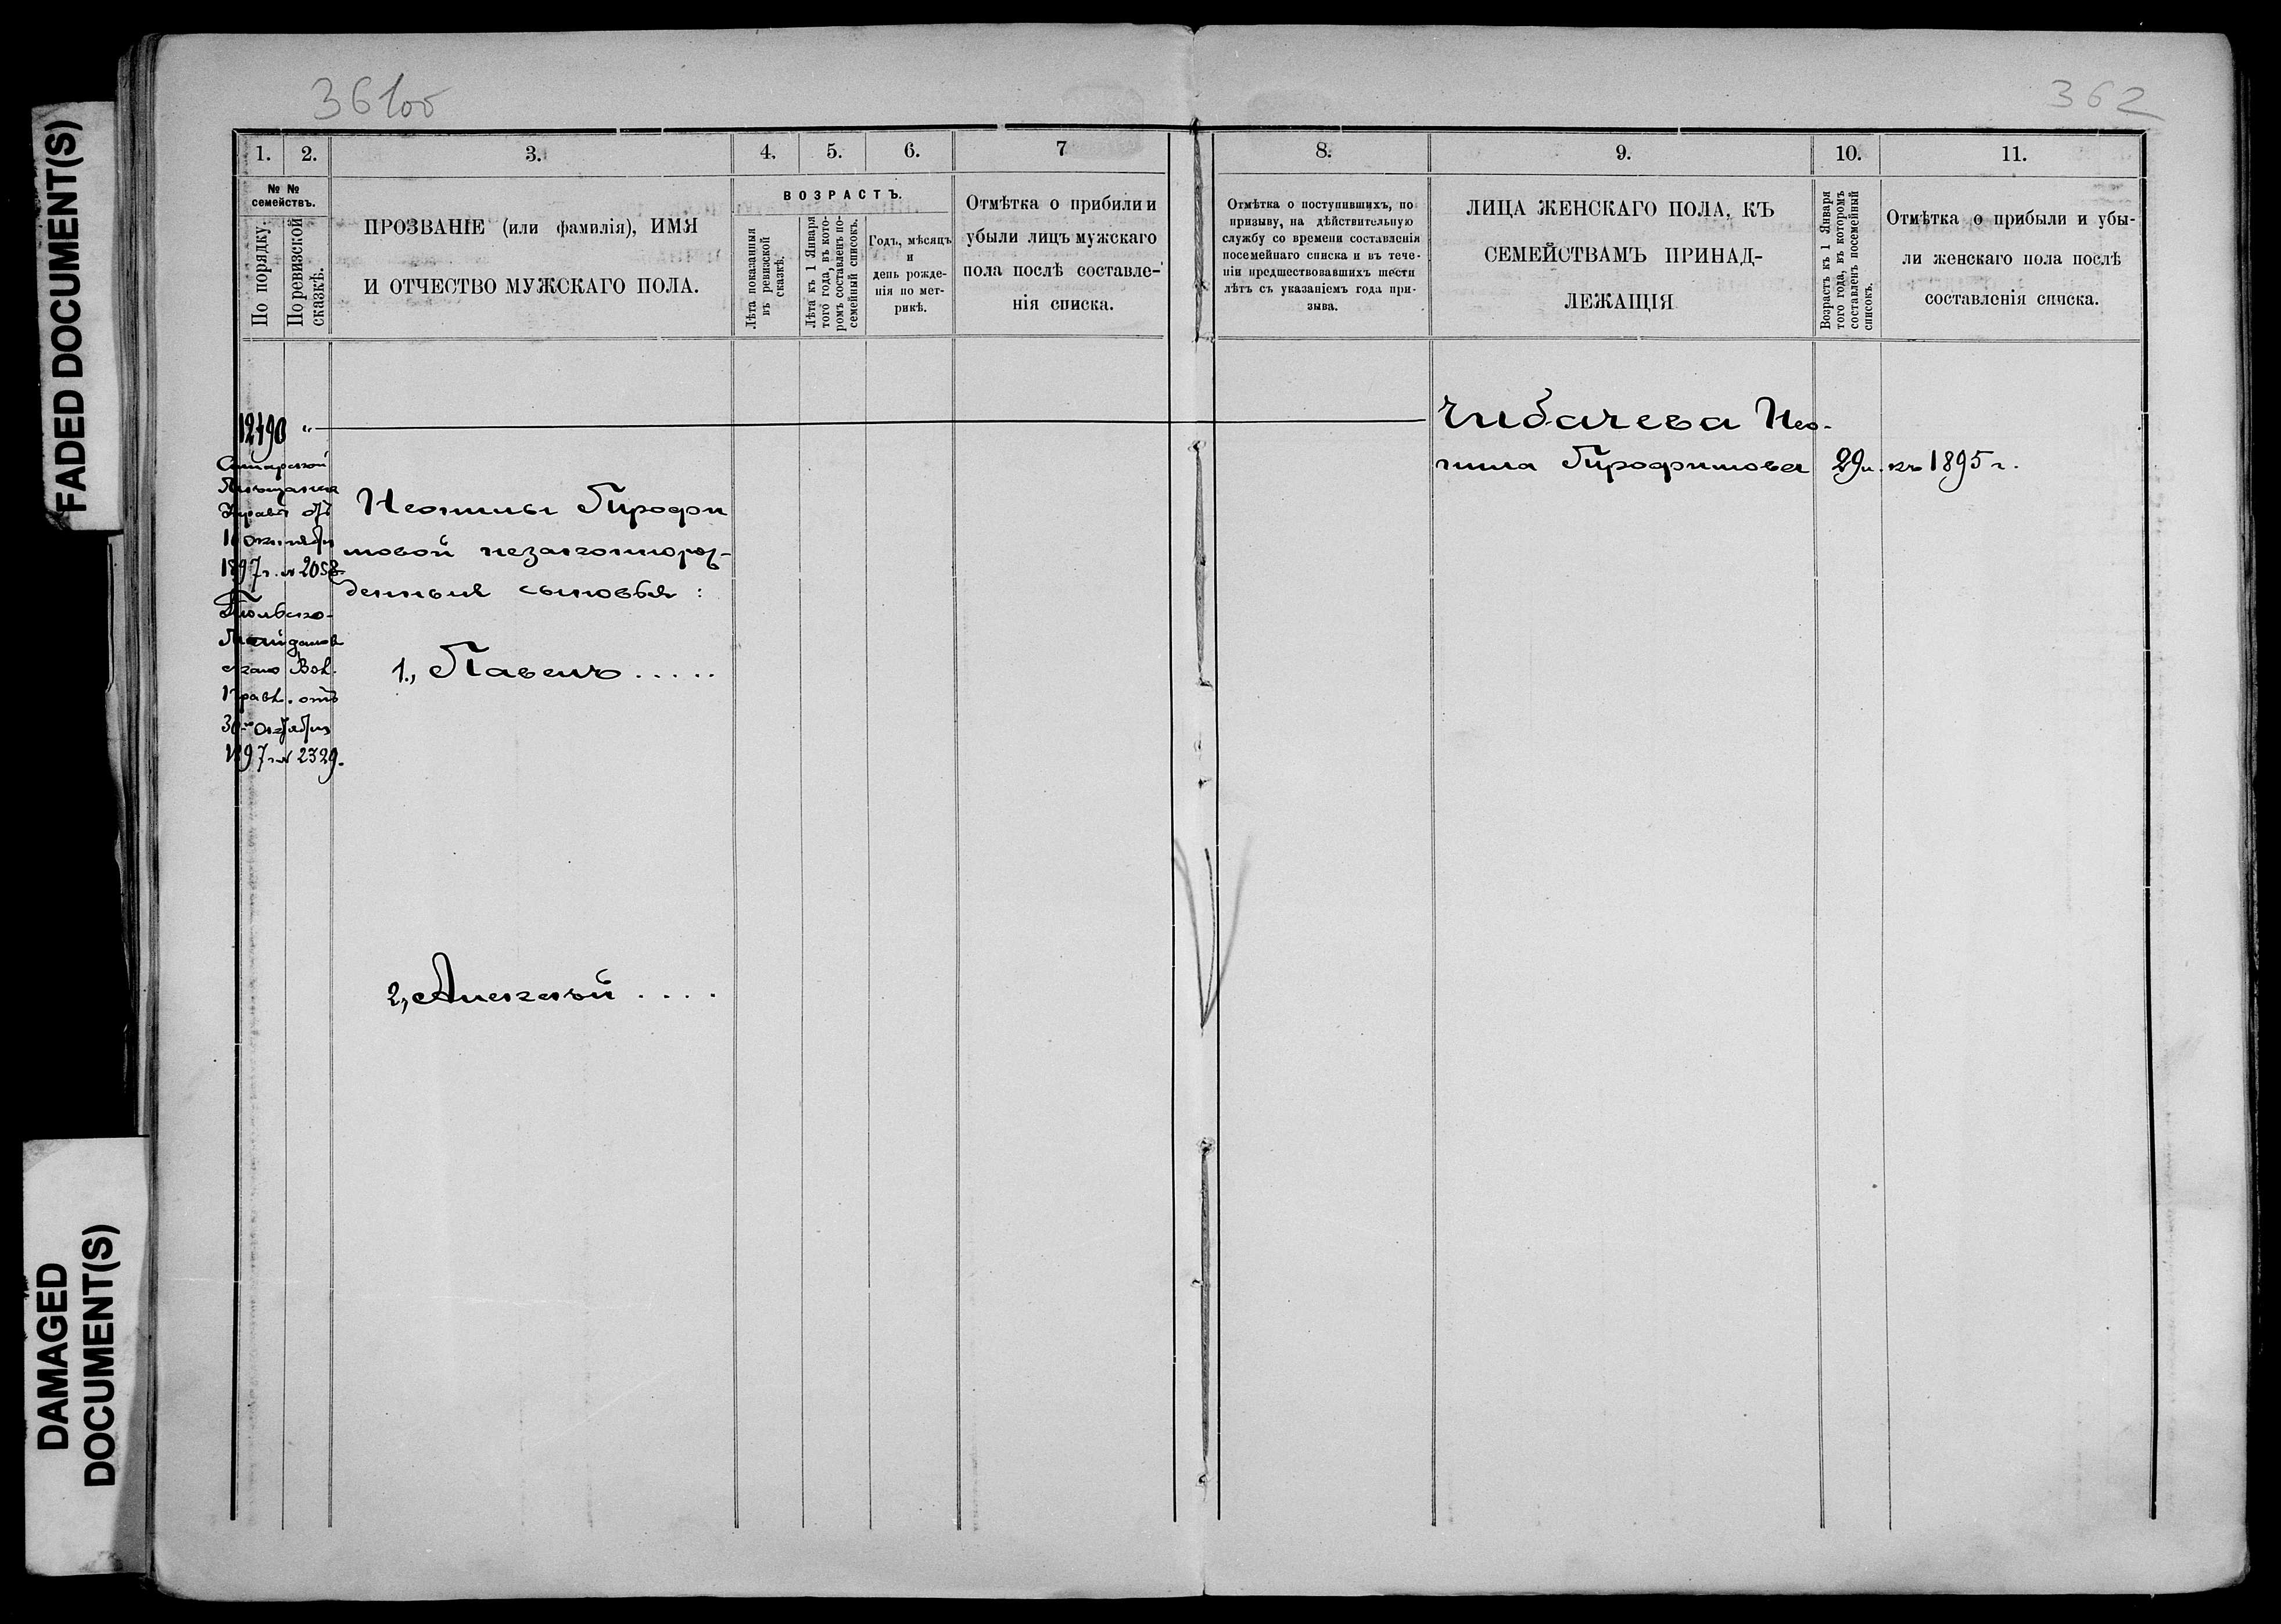 FADED DOCUMENT(S)
DAMAGED
DOCUMENT(S)
361об
362
1.
2.
3.
4.
5.
6.
7
№ №
семействъ.
По порядку.
По ревизской
сказкѣ.
ПРОЗВАНІЕ (или фамилія), ИМЯ
И ОТЧЕСТВО МУЖСКАГО ПОЛА.
ВОЗРАСТЪ.
Лѣта показанныя
въ ревизской
сказкѣ.
Лѣта къ 1 Января
того года, въ кото-
ромъ составленъ по-
семейный списокъ.
Годъ, мѣсяцъ
и
день рожде-
нія по мет-
рикѣ.
Отмѣтка о прибили и
убыли лицъ мужскаго
пола послѣ составле-
нія списка.
8.
9.
10.
11.
Отмѣтка о поступившихъ, по
призыву, на дѣйствительную
службу со времени составленія
посемейнаго списка и въ тече-
ніи предшествовавшихъ шести
лѣтъ съ указаніемъ года при-
зыва.
ЛИЦА ЖЕНСКАГО ПОЛА, КЪ
СЕМЕЙСТВАМЪ ПРИНАД-
ЛЕЖАЩІЯ
Возрастъ къ 1 Января
того года, въ которомъ
составленъ посемейный
списокъ.
Отмѣтка о прибыли и убы-
ли женскаго пола послѣ
составленія списка.
12490 "
Самарской
Управы отъ
16 Октября
1897 г. № 2058
Майданов
скаго Вол.
Правл. отъ
30го Октября
1897 г. № 2329.
Неонилы Трофи
мовой незаконорож-
денныя сыновья:
1., Павелъ . . . . .
2., Алексѣй . . . .
Чибачева Нео-
нила Трофимова 29 л. къ 1895 г.